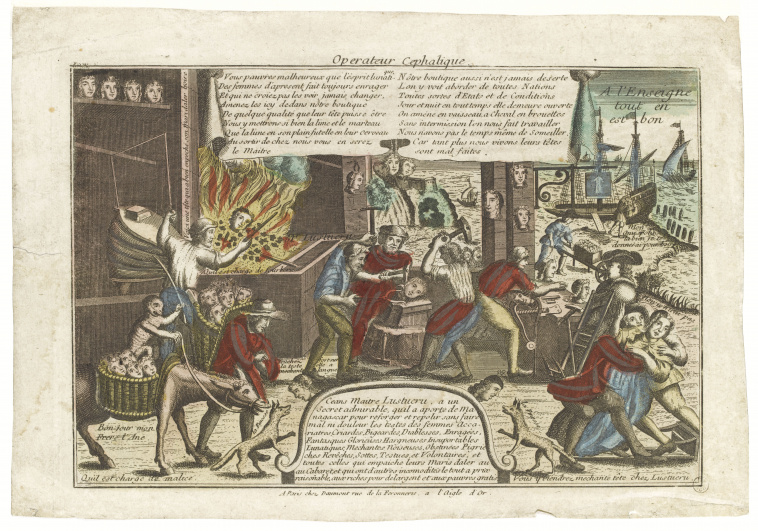 Operateur Cephalique
Vous pauvres malheureux que l'esprit lunati
que
Des femmes d'apresent fait toujours enrager
Et qui ne croiez pas les voir jamais changer,
Amenez les icy dedans nôtre boutique
De quelque qualité que leur tête puisse être
Vous y mettrons si bien la lime et le marteau
Que la lune en son plain futelle en leur cerveau
Au sortir de chez nous vous en serez
le Maitre
Nôtre boutique aussi n'est jamais deserte
L'on y voit aborder de toutes Nations
Toutes sortes d'Etats et de Conditions
Jour et nuit en tout temps elle demeure ouverte
On amène en vaisseau a Cheval en brouettes
Sans intermission l'on nous fait travailler
Nous n'avons pas le temps même de someiller
Car tant plus nous vivons leurs têtes
sont mal faites.
A l'Enseigne
tout en
est bon
Lustucru
Ceans Maitre Lustucru, a un
Secret admirable, qu'il a aporté de Ma
nagascar pour reforger et repolir sans faire
mal ni douleur les testes des femmes Acca
riatres, Criardes, Diablesses, Enragées,
Fantasques Glorieuses, Hargneuses Insuportables
Lunatiques Mechantes Noiseuses, Obstinées Pigrie
ches Revêches, Sottes, Testues et Volontaires, et
toutes celles qui empeche leurs Maris daler au
au Cabaret et qui ont d'autres incomodités le tout a prix
raisonable, aux riches pour de l'argent et aux pauvres gratis
Bon-jour mon
Frere l'Ane
Qu'il est chargé de malice
Vous y viendrez mechante tete chez Lustucru
A Paris chez Daumont rue de la Feronnerie, a l'aigle d'Or